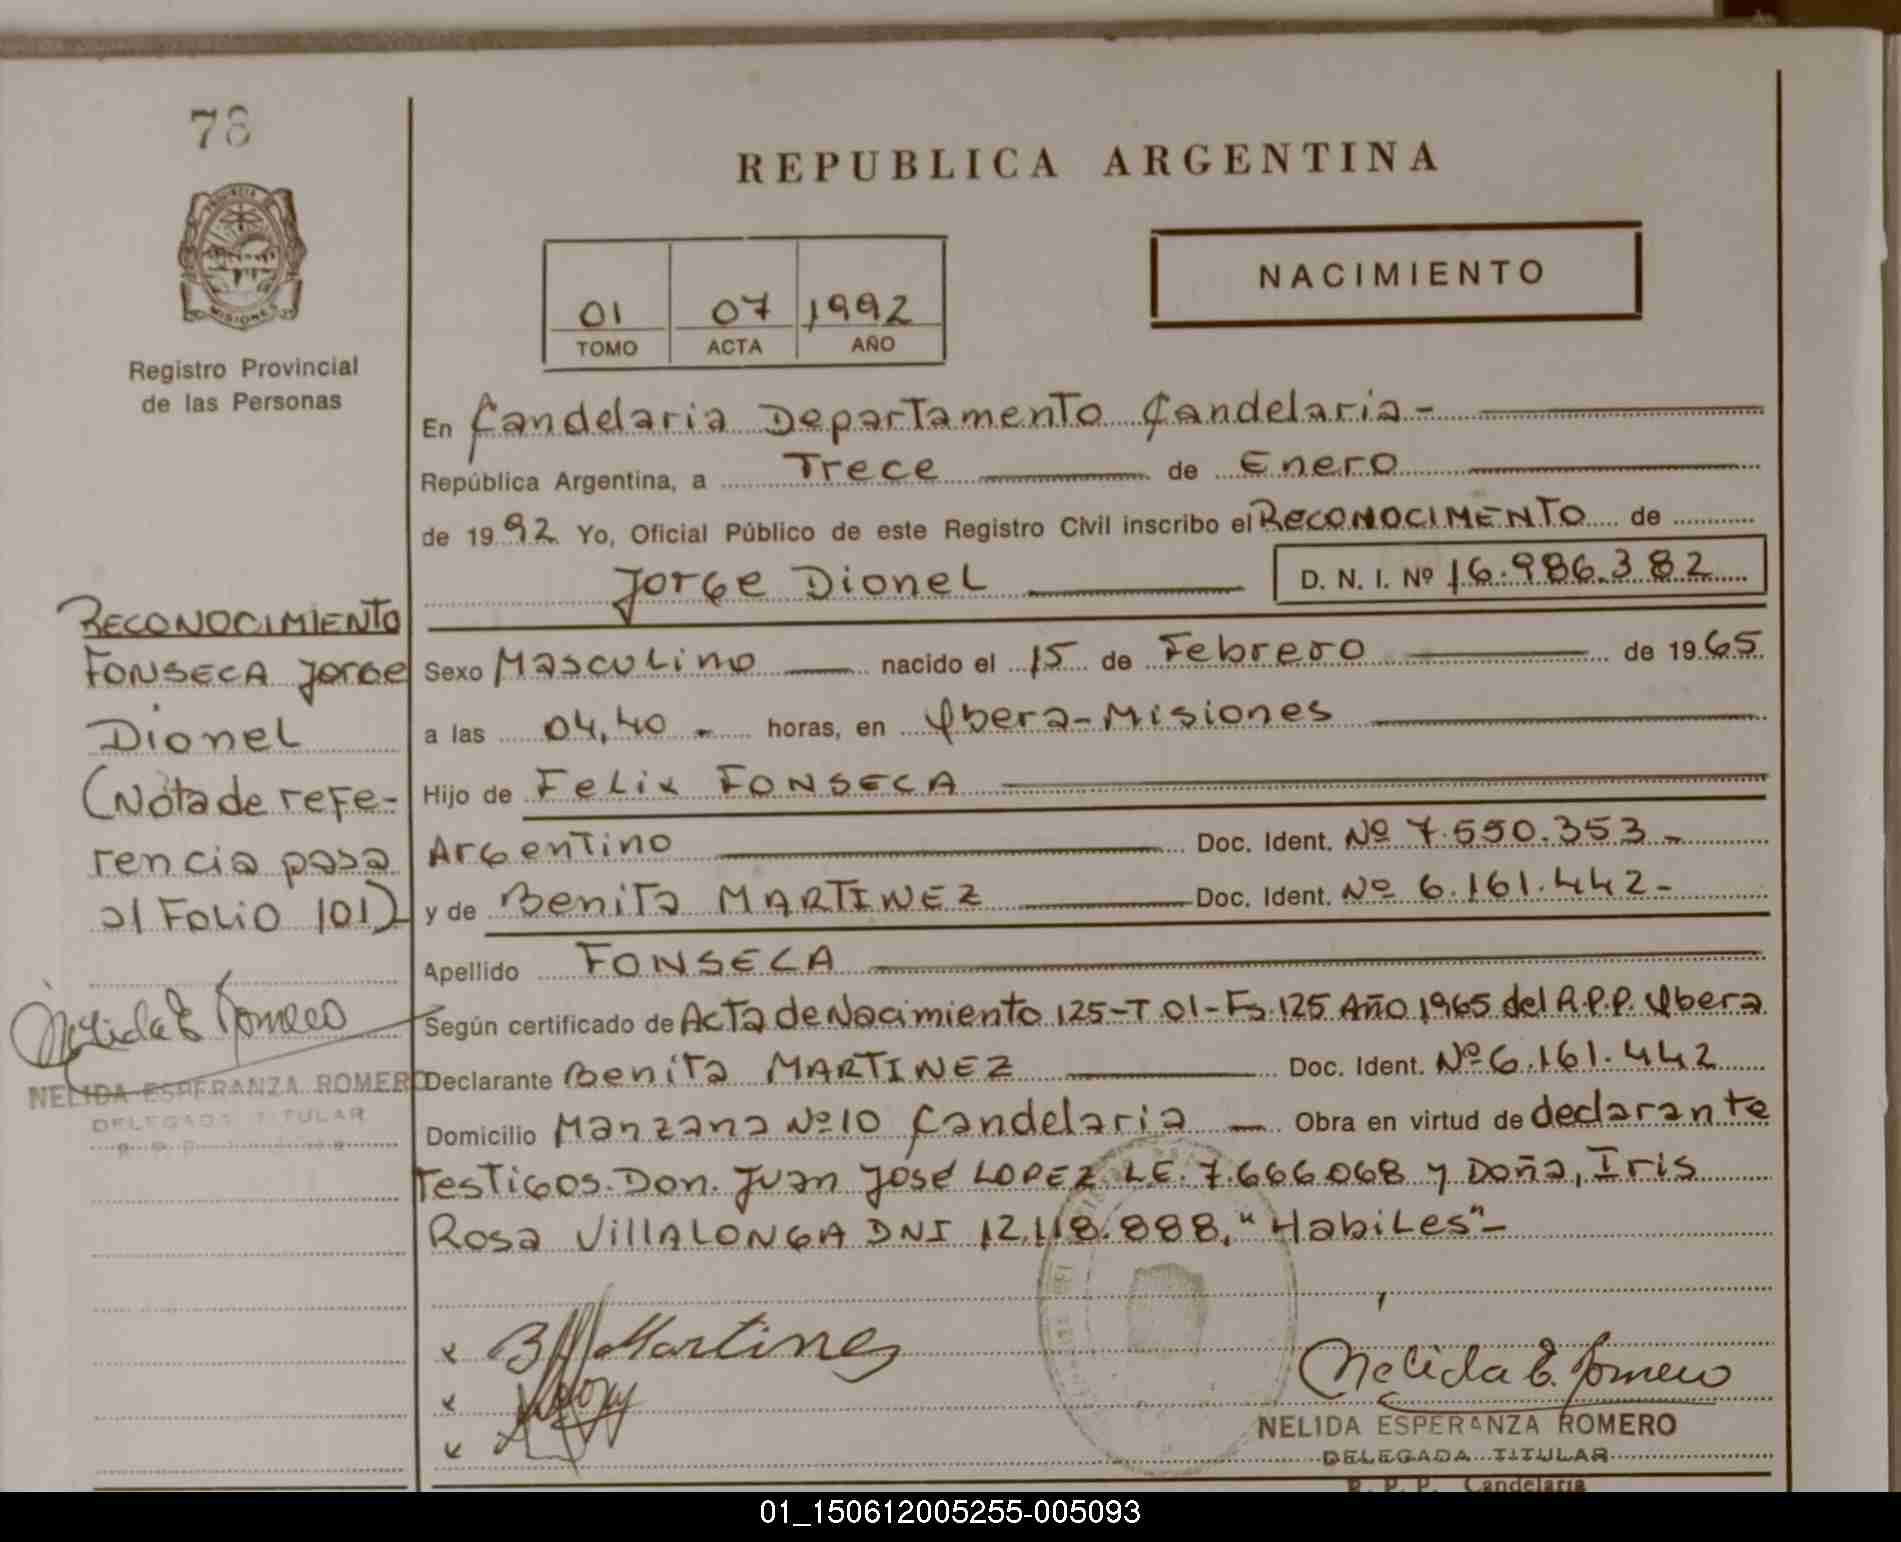 78
REPUBLICA ARGENTINA
PROVINCIA D
MISIONES
Registro Provincial
de las Personas
01 07 1992
TOMO ACTA AÑO
NACIMIENTO
En Candelaria Departamento Candelaria-
República Argentina, a Trece de Enero
de 1992 Yo, Oficial Público de este Registro Civil inscribo el RECONOCIMENTO de
Jorge Dionel D. N. I. Nº 16.986.382
Sexo Masculino nacido el 15 de Febrero de 1965
a las 04,40 - horas, en Ybera-Misiones
Hijo de Felix FONSECA
Argentino Doc. Ident. Nº 7.550.353-
y de Benita MARTINEZ Doc. Ident. Nº 6.161.442-
Apellido FONSECA
Según certificado de Acta de Nacimiento 125-T 01-Fs.125 Año 1965 del R.P.P. Ybera
Declarante Benita MARTINEZ Doc. Ident. Nº 6.161.442
Domicilio Manzana Nº10 Candelaria - Obra en virtud de declarante
Testigos. Don. Juan José LOPEZ LE. 7.666.068 y Doña, Iris
Rosa VillALONGA DNI 12.118.888, "Habiles"-
RECONOCIMIENTO
FONSECA Jorge
Dionel
(Nota de refe-
rencia pasa
al FOLIO 101)
Nelida E. Romero
NELIDA ESPERANZA ROMERO
DELEGADA TITULAR
x B Martinez
x
x
Nelida E. Romero
NELIDA ESPERANZA ROMERO
DELEGADA TITULAR
R. P. P. Candelaria
01_150612005255-005093